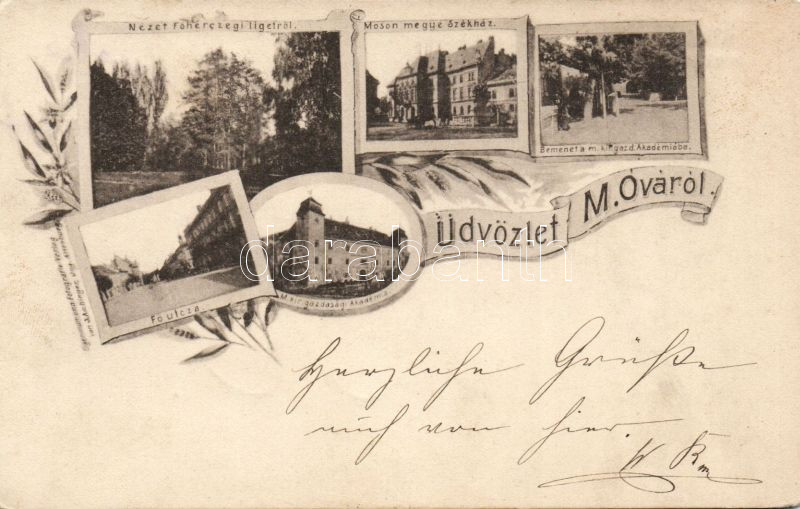 Nézet Főherczegi ligetről.
Moson megye Székház.
Bemenet a m. kir. gazd. Akadémiába.
Üdvözlet M. Óváról.
Fő utcza
M. kir. gazdasági Akadémia
darabanth
Herzliche Grüße
auch von hier.